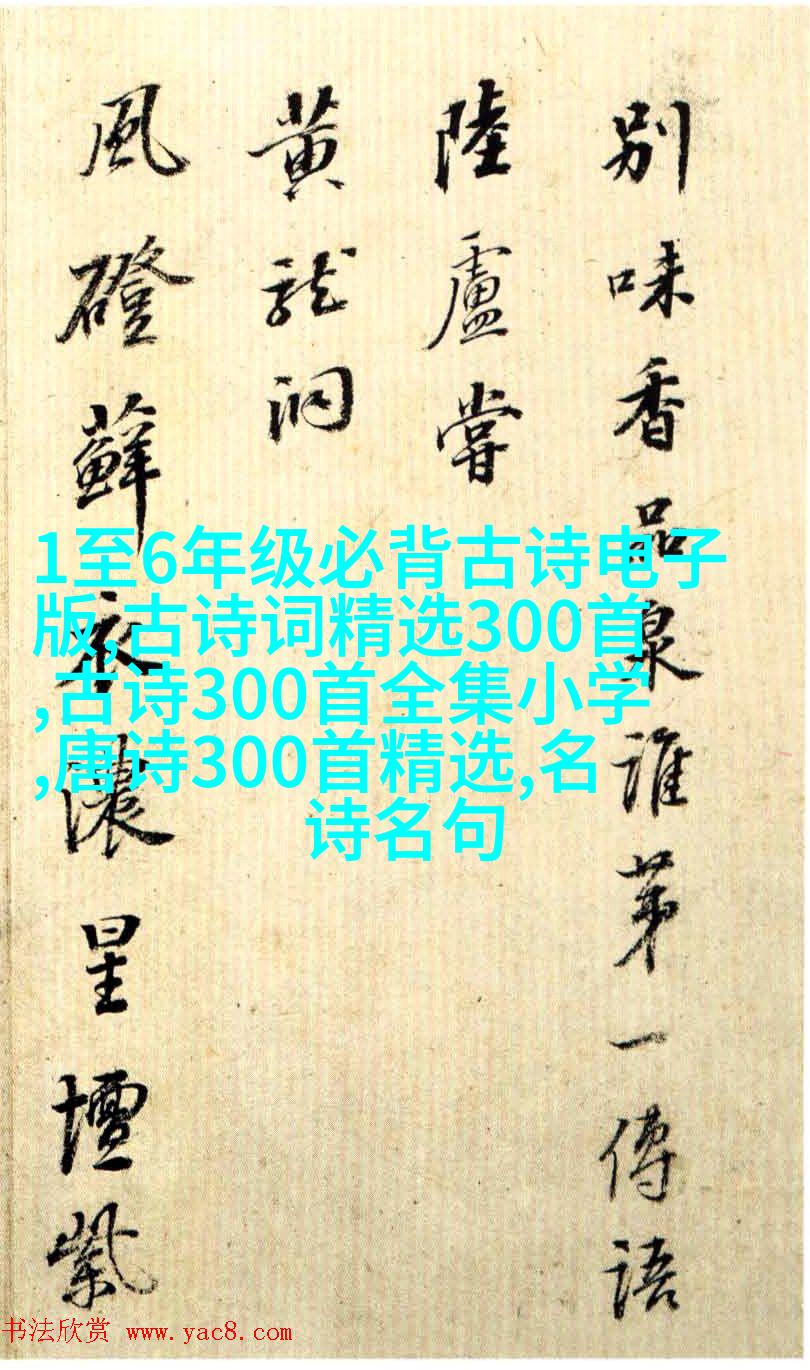 别味香品泉谁茅一傳語
陸盧嘗
黄龍洞
風磴蘚衣濃星壇紫
1至6年级必背古诗电子
版,古诗词精选300首
,古诗300首全集小学
,唐诗300首精选,名
诗名句
书法欣赏 www.yac8.com